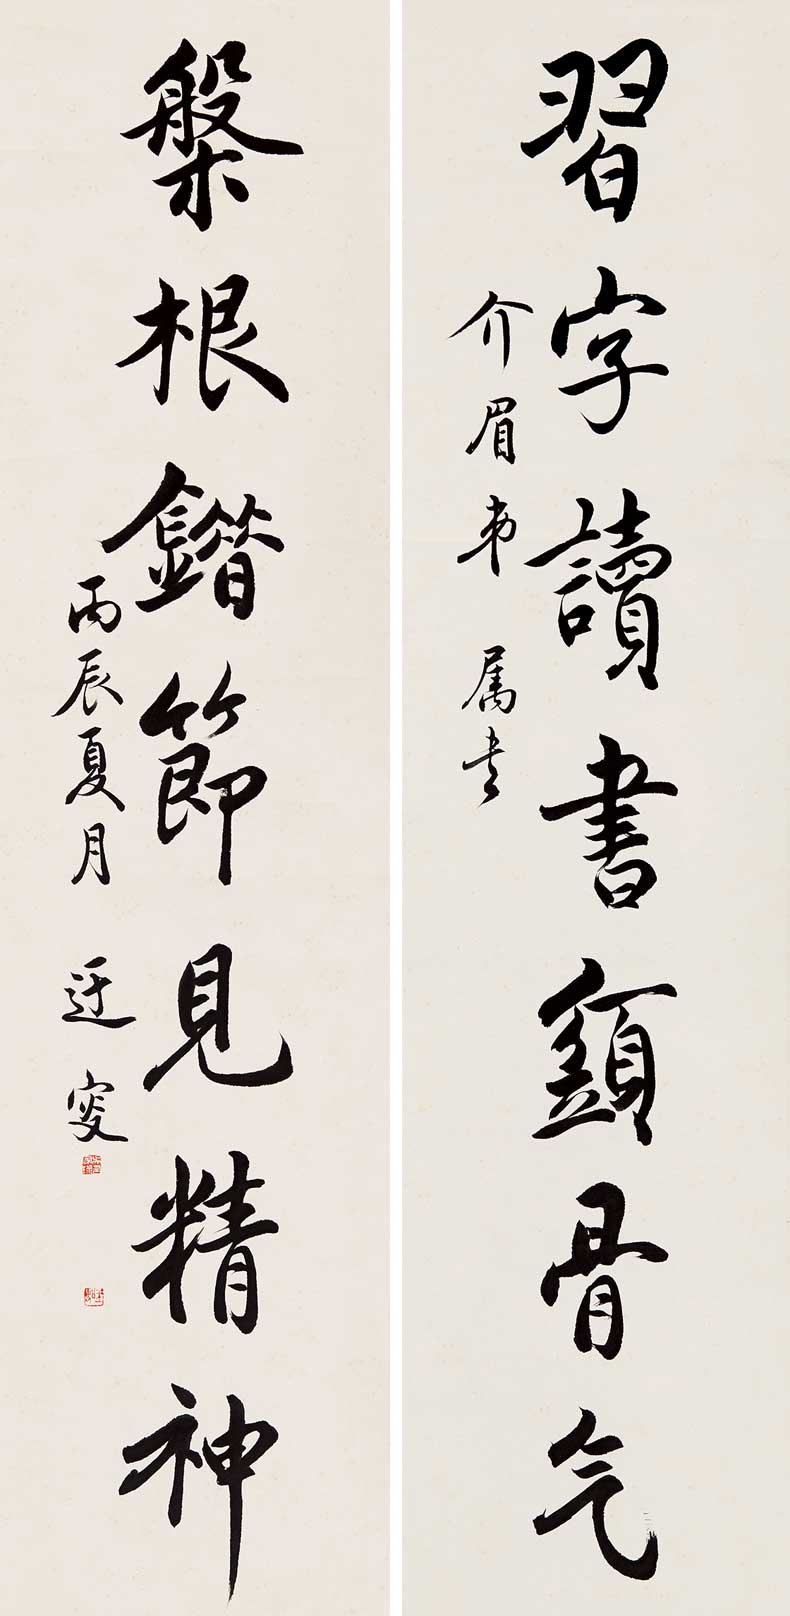 習字讀書顯骨气
介眉弟 属书
槃根錯節見精神
丙辰夏月 迂叟